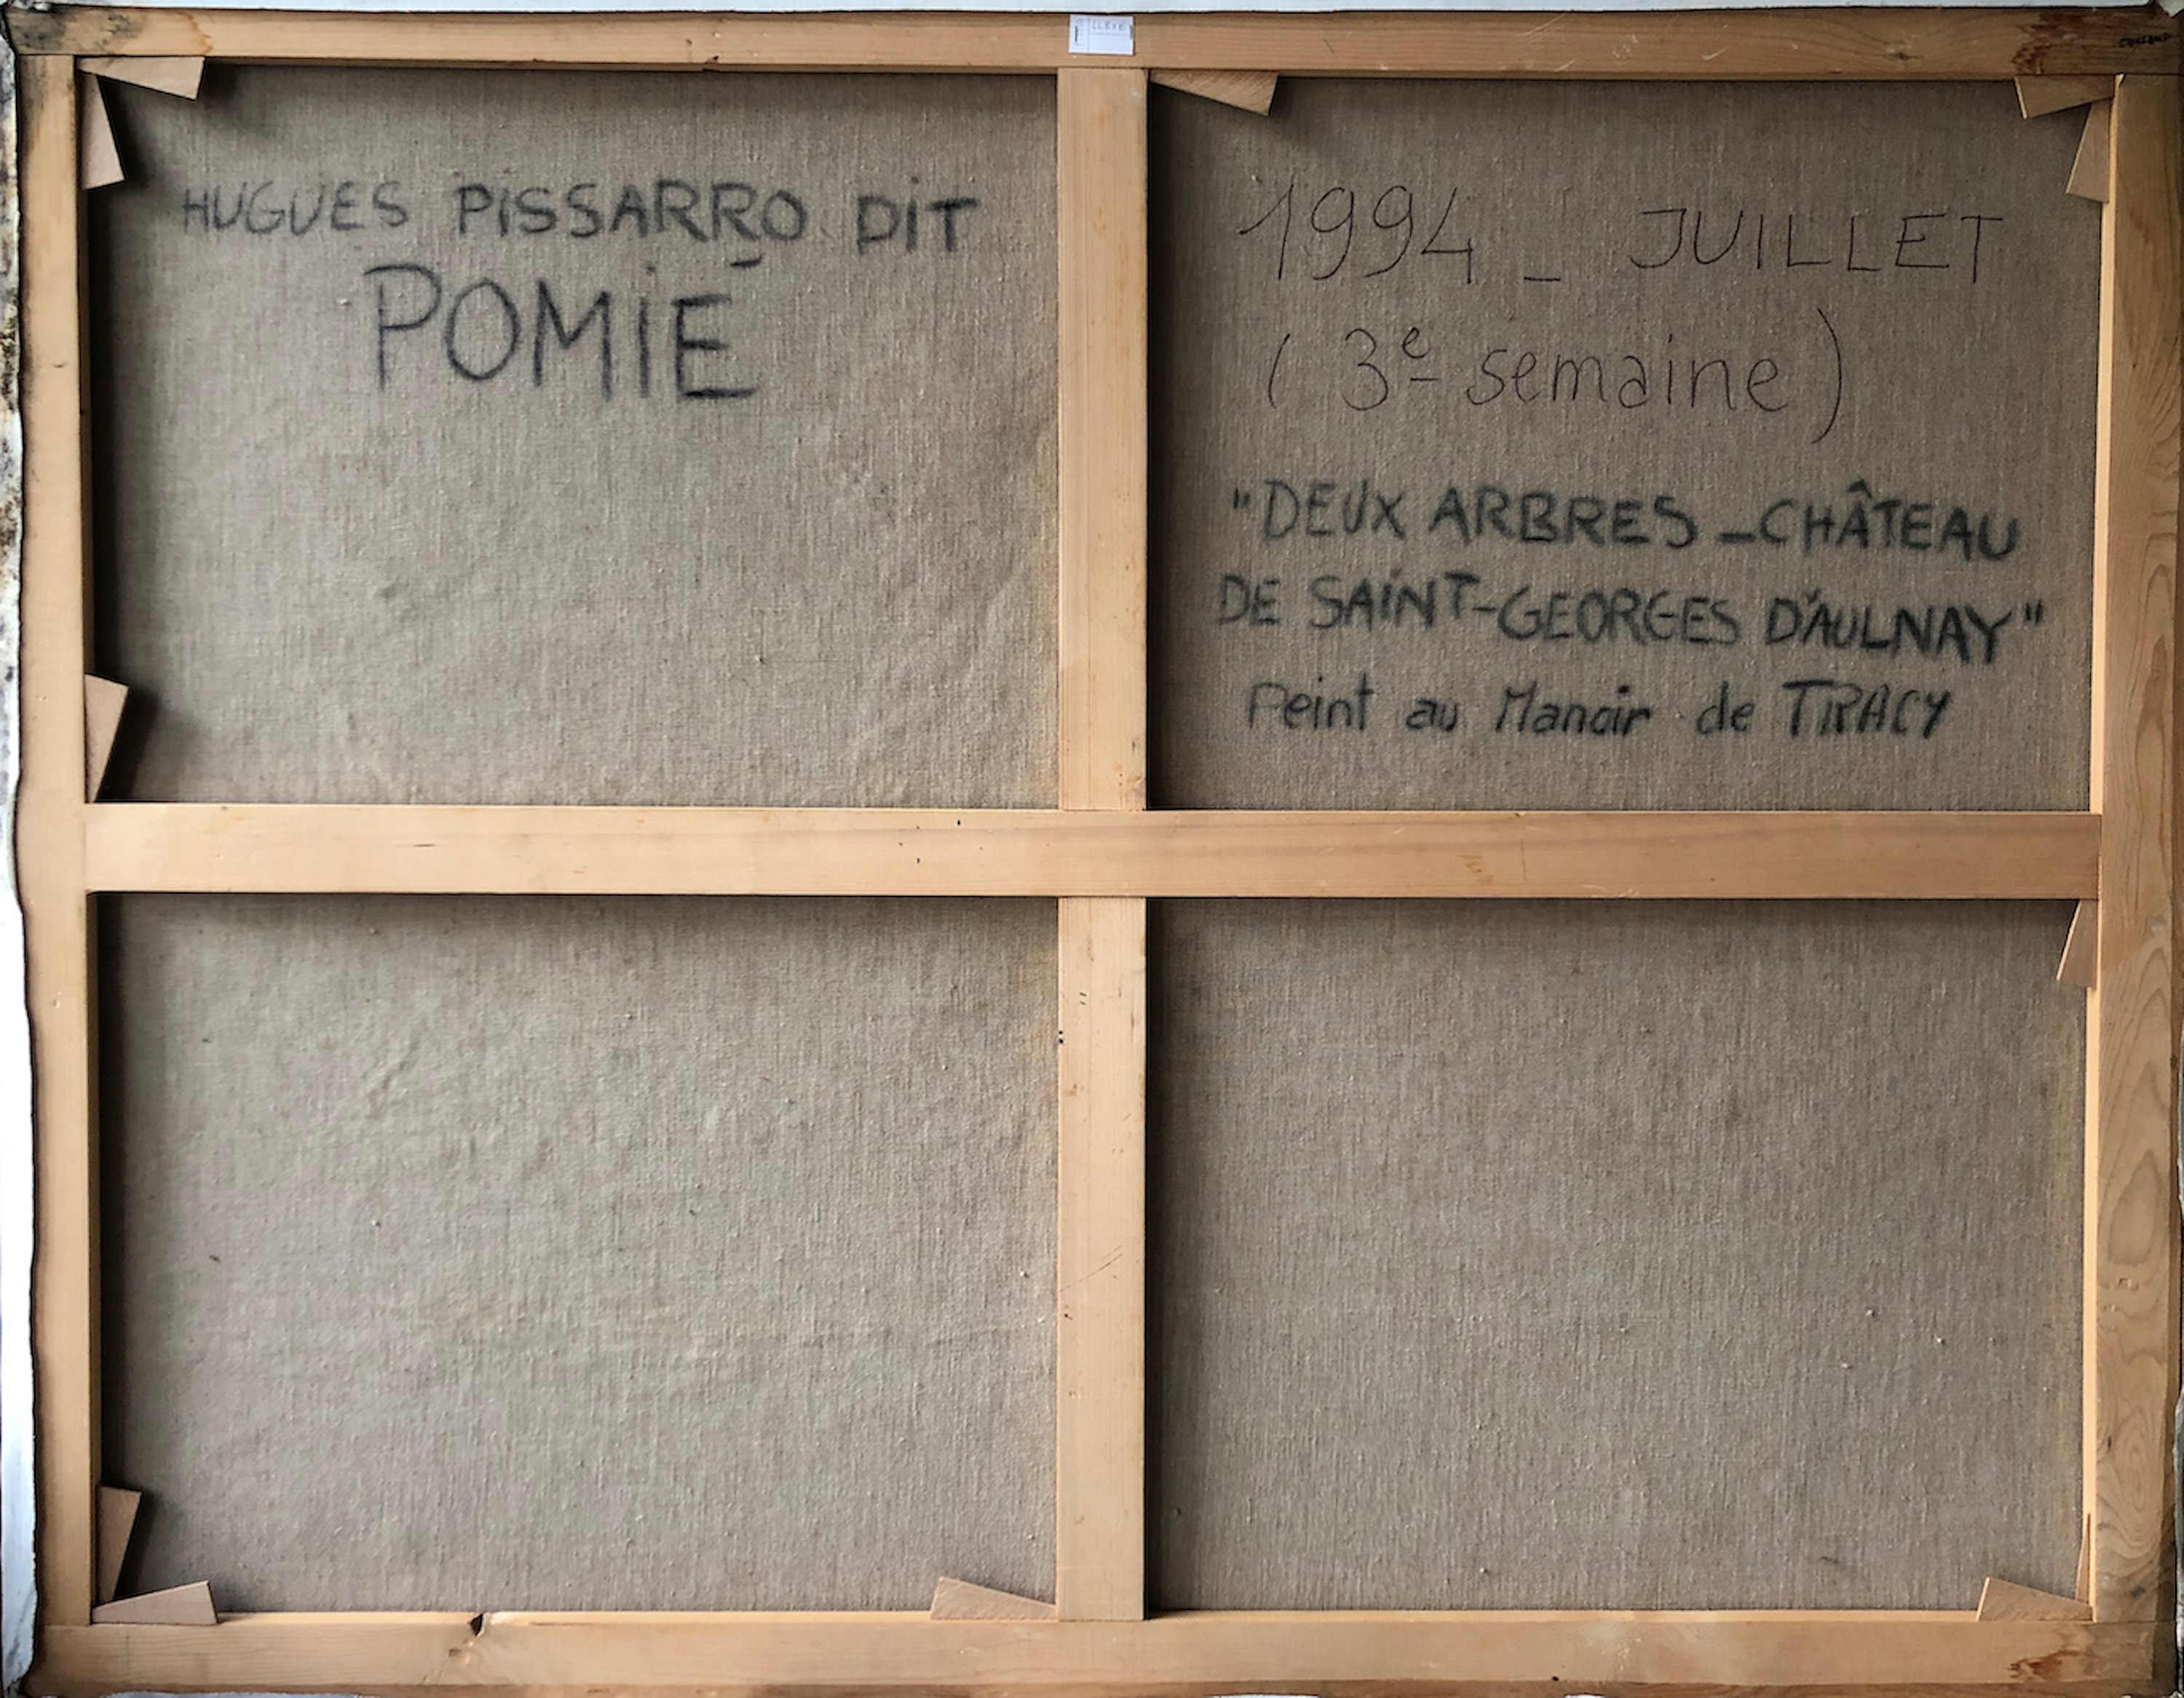 HUGUES PISSARRO DIT
POMIÉ
1994 _ JUILLET
( 3e semaine )
"DEUX ARBRES _ CHÂTEAU
DE SAINT-GEORGES D'AULNAY"
Peint au Manoir de TRACY